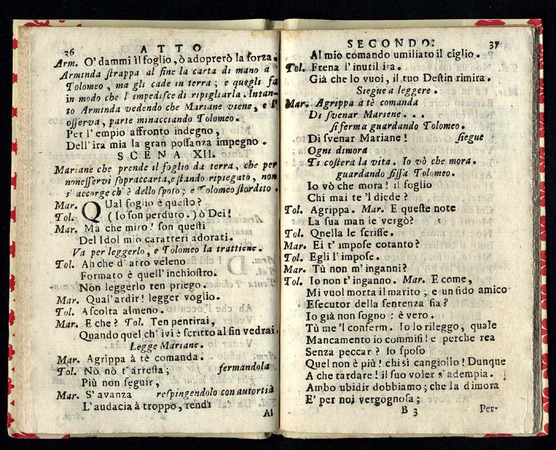 36 ATTO
Arm. O' dammi il foglio, ò adoprerò la forza.
Arminda strappa al fine la carta di mano à
Tolomeo, ma gli cade in terra; e quegli fa
in modo che l'impedisce di ripigliarla. Intan-
to Arminda vedendo che Mariane viene, e
osserva, parte minacciando Tolomeo.
Per l'empio affronto indegno,
Dell'ira mia la gran possanza impegno.
SCENA XII.
Mariane che prende il foglio da terra, che per
nonesservi sopraccarta, estando ripiegato, non
s'accorge ch'è dello sposo; e Tolomeo stordito.
Mar. Qual foglio è questo?
Tol. (Io son perduto.) ò Dei!
Mar. Ma che miro! son questi
Del Idol mio caratteri adorati.
Va per leggerlo, e Tolomeo la trattiene.
Tol. Ah che d'atro veleno
Formato è quell'inchiostro.
Non leggerlo ten priego.
Mar. Qual'ardir! legger voglio.
Tol. Ascolta almeno.
Mar. E che? Tol. Ten pentirai,
Quando quel ch'ivi è scritto al fin vedrai.
Legge Mariane.
Mar. Agrippa à tè comanda.
Tol. Nò nò t'arresta; fermandola
Più non seguir,
Mar. S'avanza respingendolo con autorità
L'audacia à troppo, rendi
Al
SECONDO. 37
Al mio comando umiliato il ciglio.
Tol. Frena l'inutil ira.
Già che lo vuoi, il tuo Destin rimira.
Siegue a leggere.
Mar. Agrippa à tè comanda
Di svenar Mariene...
si ferma guardando Tolomeo.
Di svenar Mariane! siegue
Ogni dimora
Ti costerà la vita. Io vò che mora.
guardando fissa Tolomeo.
Io vò che mora! il foglio
Chi mai te 'l diede?
Tol. Agrippa. Mar. E queste note
La sua man le vergò?
Tol. Quella le scrisse.
Mar. Ei t'impose cotanto?
Tol. Egli l'impose.
Mar. Tù non m'inganni?
Tol. Io non t'inganno. Mar. E come,
Mi vuol morta il marito; e un fido amico
Esecutor della sentenza fia?
Io già non sogno: è vero.
Tù me'l conferm. Io lo rileggo, quale
Mancamento io commisi! e perche rea
Senza peccar? lo sposo
Quel non è più! chi sì cangiollo! Dunque
A che tardare! il suo voler s'adempia.
Ambo ubidir dobbiamo; che la dimora
E' per noi vergognosa;
B 3 Per-